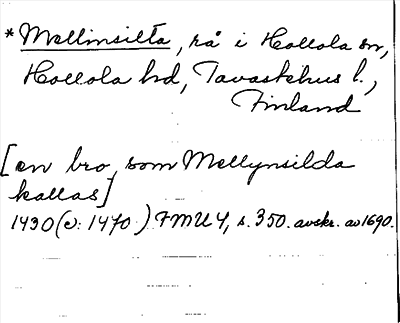 *Mellinsilta, rå i Hollola sn,
Hollola hd, Tavastehus l.,
Finland
[en bro som Mellynsilda
kallas]
1430 (v: 1470) FMU 4, s. 350. avskr. av 1690.